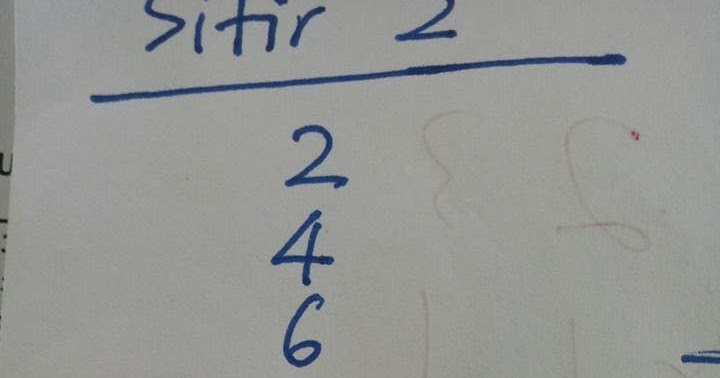 Sifir 2
2
4
6